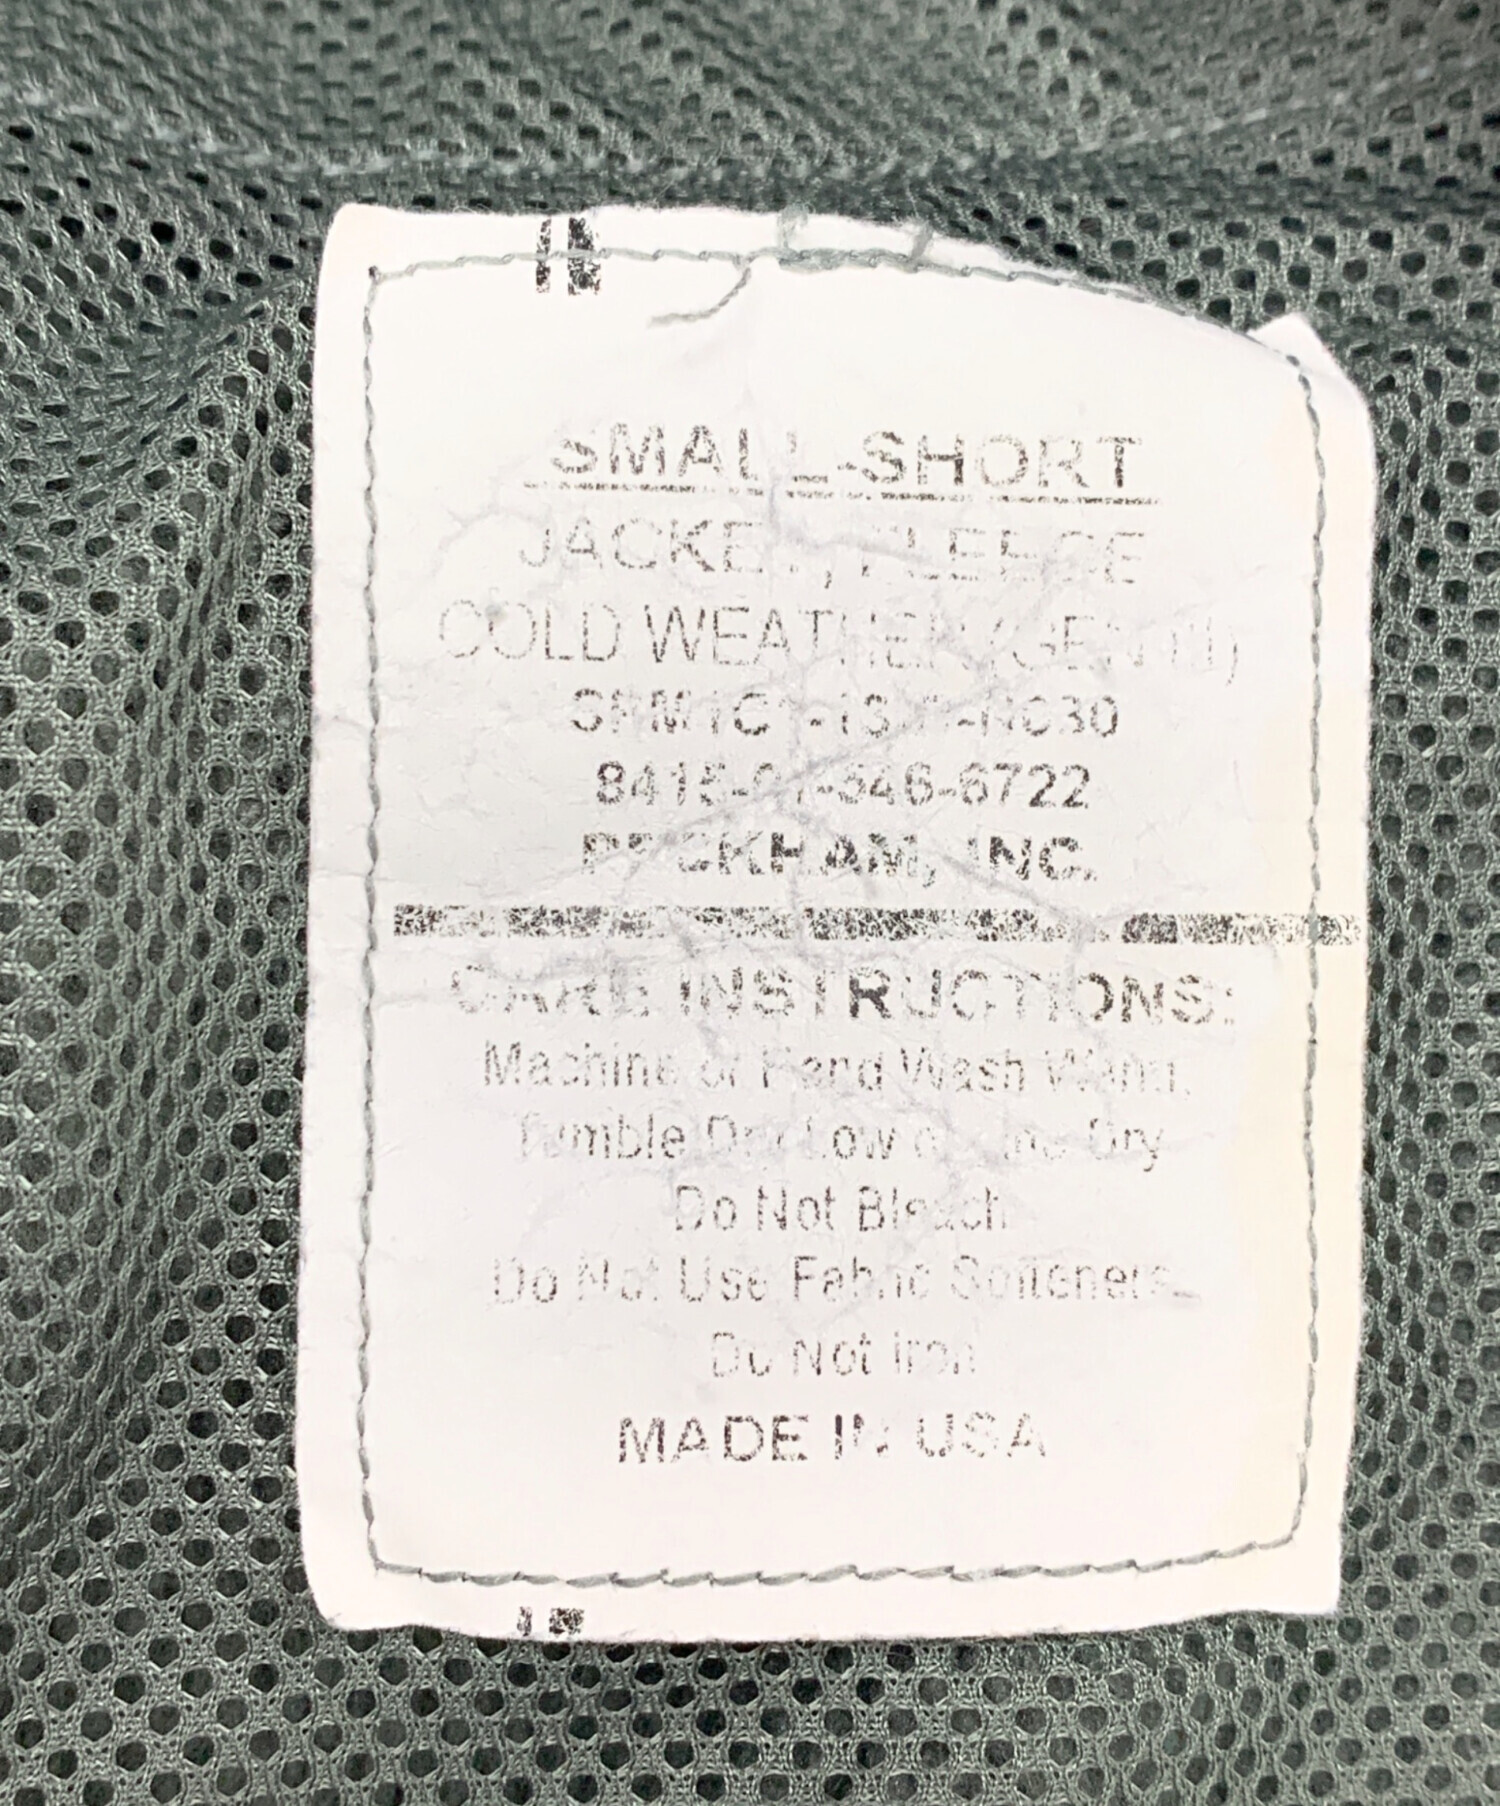 SMALL-SHORT
JACKET, FLEECE
COLD WEATHER (GEN III)
8415-01-546-6722
PECKHAM, INC.
CARE INSTRUCTIONS:
Machine or Hand Wash Warm.
Tumble Dry Low or Line Dry
Do Not Bleach
Do Not Use Fabric Softeners
Do Not Iron
MADE IN USA